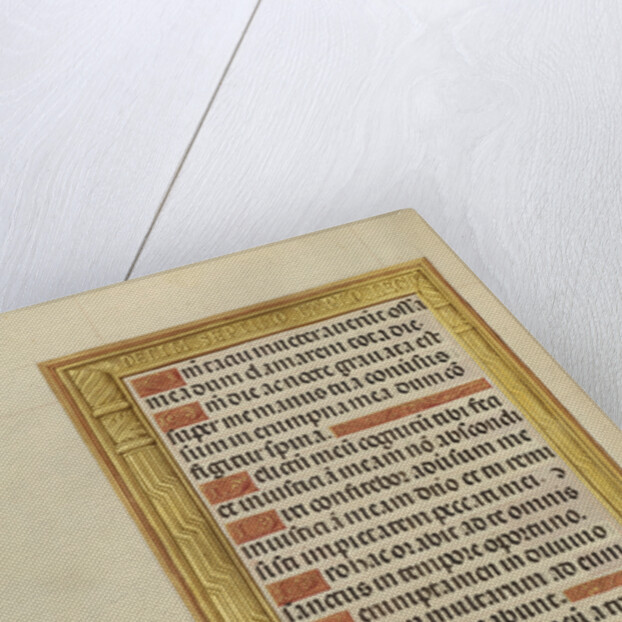 Qm̄ tacui inveteraverūt ossa
mea dum clamarem tota die
Qm̄ die ac nocte gravata est
super me manus tua conversus
sum in erumpna mea dum cō
figitur spina
Delictū meū cognitū tibi feci
et iniustitiā meam nō abscondi
Dixi confitebor adversum me
iniustitiā meam dño et tu remi
sisti impietatem peccati mei
Pro hac orabit ad te omnis
sanctus in tempore oportuno
Verumptamen in diluvio
multarum ad eum